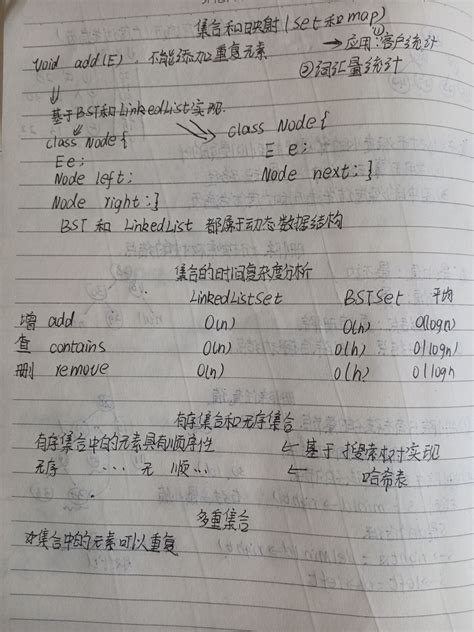 集合和映射(set和map)
void add(E), 不能添加重复元素 → 应用: ①客户统计
②词汇量统计
基于BST和LinkedList实现.
class Node{ class Node{
E e; E e;
Node left; Node next;}
Node right;}
BST 和 LinkedList 都属于动态数据结构
集合的时间复杂度分析
LinkedListSet BSTSet 平均
增 add O(n) O(h) O(logn)
查 contains O(n) O(h) O(logn)
删 remove O(n) O(h) O(logn
有序集合和无序集合
有序集合中的元素具有顺序性 ← 基于 搜索树实现
无序 ... 无 顺... ← 哈希表
多重集合
集合中的元素可以重复